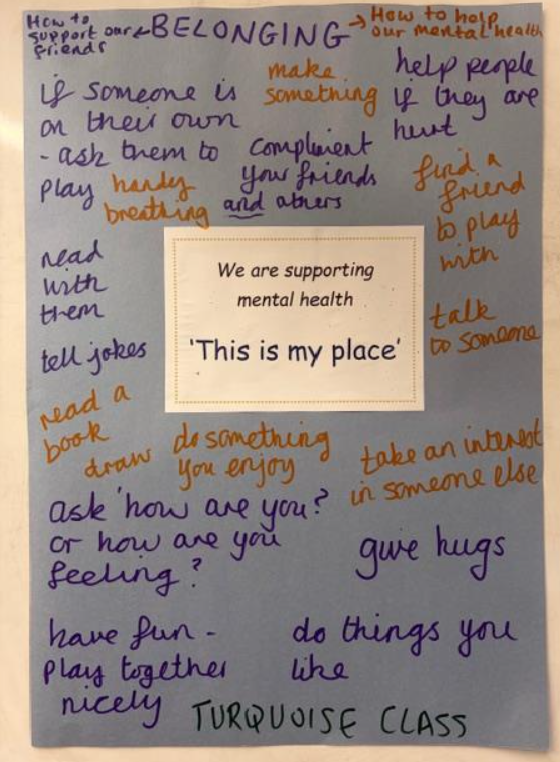 How to
support our
friends
← BELONGING →
How to help
our mental health
if someone is
on their own
- ask them to
play
make
something
help people
if they are
hurt
handy
breathing
compliment
your friends
and others
find a
friend
to play
with
read
with
them
tell jokes
We are supporting
mental health
'This is my place'
talk
to someone
read a
book
draw
do something
you enjoy
take an interest
in someone else
ask 'how are you?
or how are you
feeling?
give hugs
have fun -
play together
nicely
do things you
like
TURQUOISE CLASS